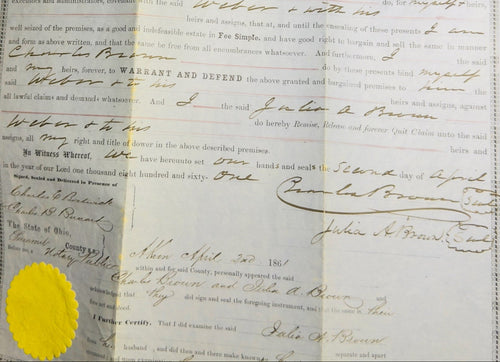 executors and administrators, covenant with the said Weber & to his do, for myself & my
heirs and assigns, that at, and until the ensealing of these presents I am
well seized of the premises, as a good and indefeasible estate in Fee Simple, and have good right to bargain and sell the same in manner
and form as above written, and that the same be free from all encumbrances whatsoever. And furthermore, I the said
Charles Brown do by these presents bind myself
and my heirs, forever, to WARRANT AND DEFEND the above granted and bargained premises to him the
said Weber & to his heirs and assigns, against
all lawful claims and demands whatsoever. And I the said Julia A Brown
do hereby Remise, Release and forever Quit Claim unto the said
Weber & to his heirs and
assigns, all my right and title of dower in the above described premises.
In Witness Whereof, We have hereunto set our hands and seals the Second day of April
in the year of our Lord one thousand eight hundred and sixty-one
Signed, Sealed and Delivered in Presence of
Charles Brown Seal
Julia A Brown Seal
The State of Ohio,
Summit County ss.
Akron April 2nd 1861
Before me, a Notary Public within and for said County, personally appeared the said
Charles Brown and Julia A. Brown and
acknowledged that they did sign and seal the foregoing instrument, and that the same is their
free act and deed.
I Further Certify, That I did examine the said Julia A. Brown
husband, and did then and there make known separate and apart